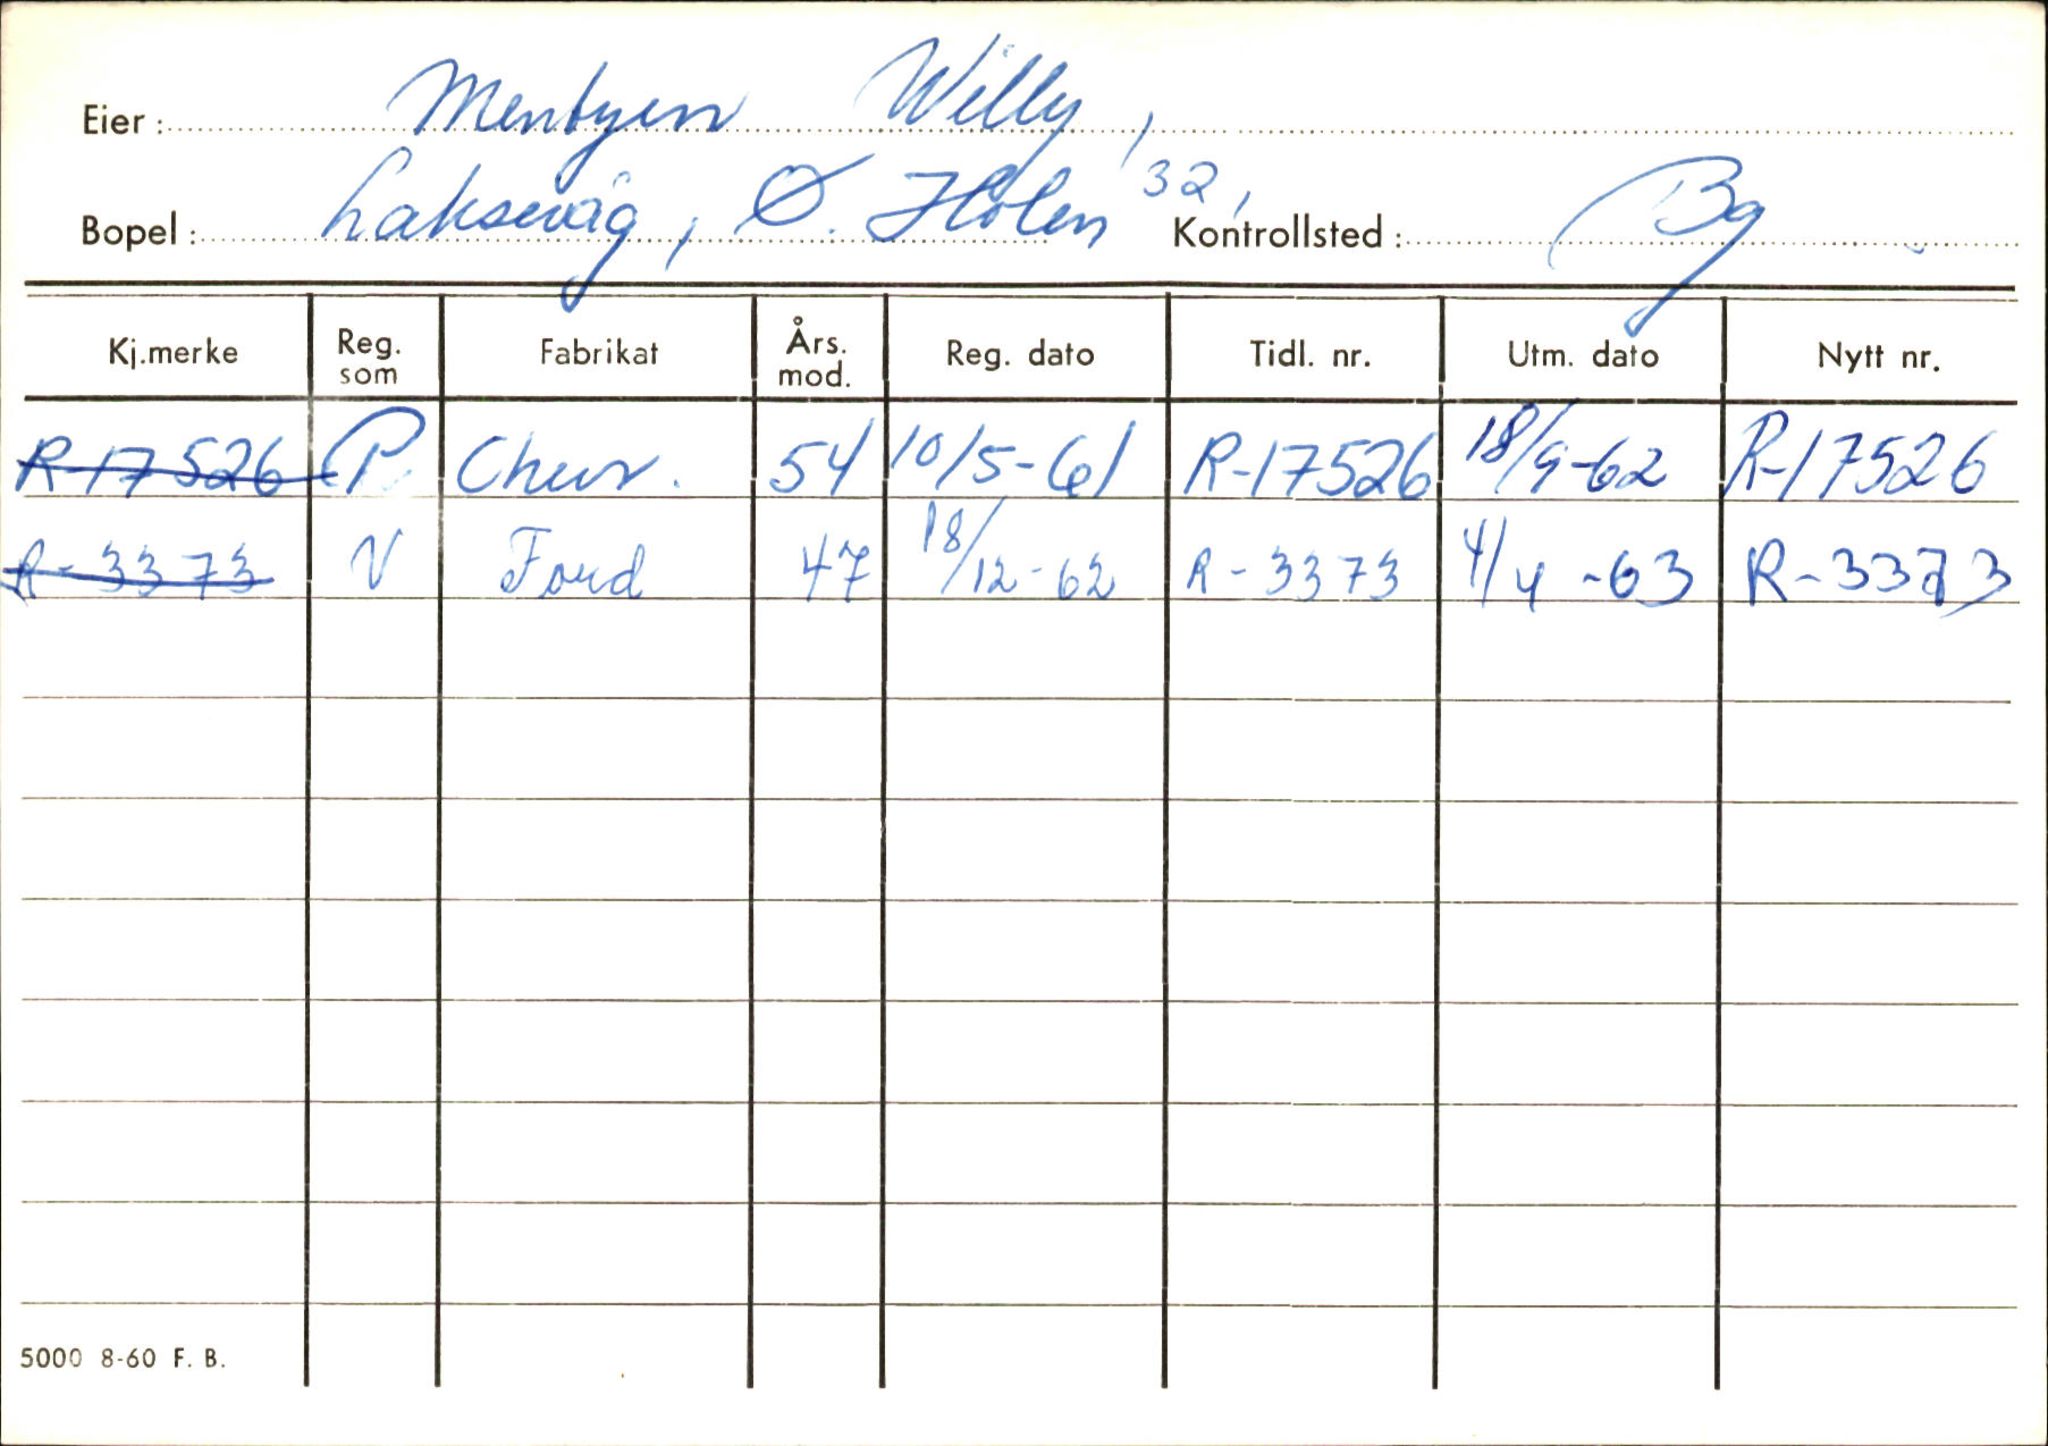 Eier: Mentzen Willy,
Bopel: Laksevåg, Ø. Holen 32, Kontrollsted: Bg
Kj.merke Reg. som Fabrikat Års. mod. Reg. dato Tidl. nr. Utm. dato Nytt nr.
R-17526 P. Chevr. 54 10/5-61 R-17526 18/9-62 R-17526
R-3373 V Ford 47 18/12-62 R-3373 4/4-63 R-3373
5000 8-60 F. B.